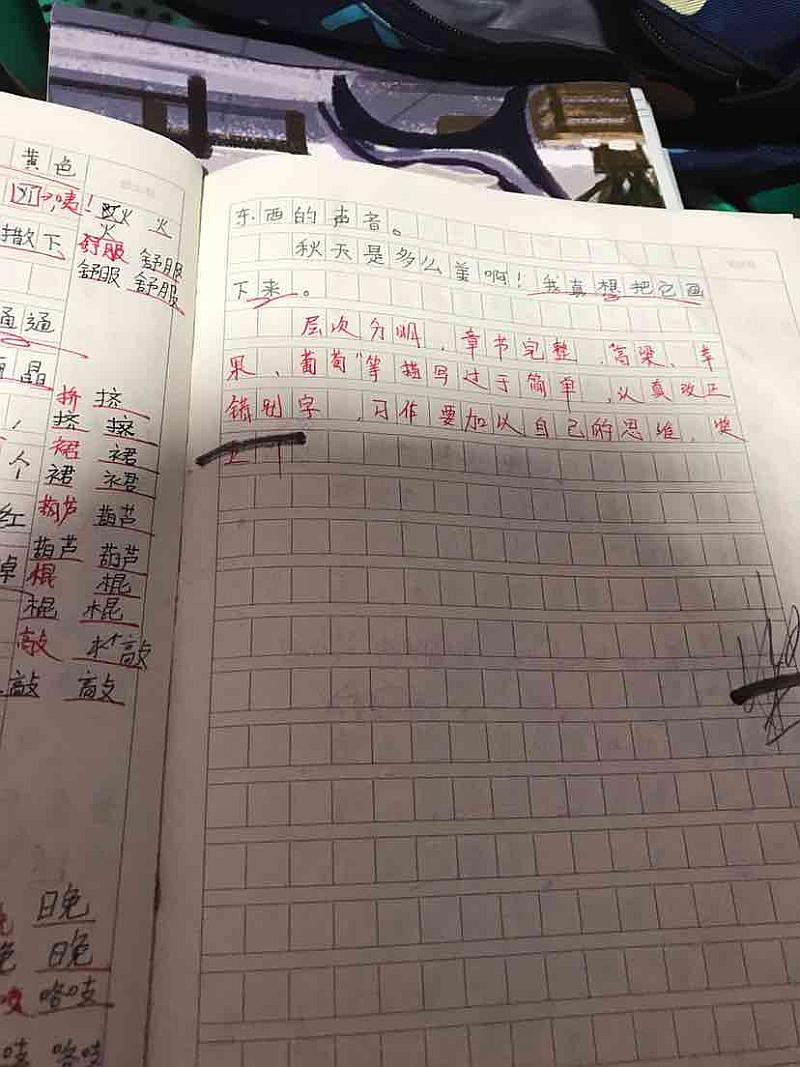 黄色
咦! 火
撒下 舒服 舒服
舒服 舒服
通通
晶
挤 挤
, 挤 擦
裙 裙
个 裙 裙
红 葫芦 葫芦
葫芦 葫芦
棍 棍
棍 棍
敲 敲
敲 敲
晚
晚
咯吱
吱 咯吱
东西的声音。
秋天是多么美啊!我真想把它画
下来。
层次分明,章节完整,高梁、苹
果、葡萄"等描写过于简单,认真改正
错别字,习作要加以自己的思维,奖